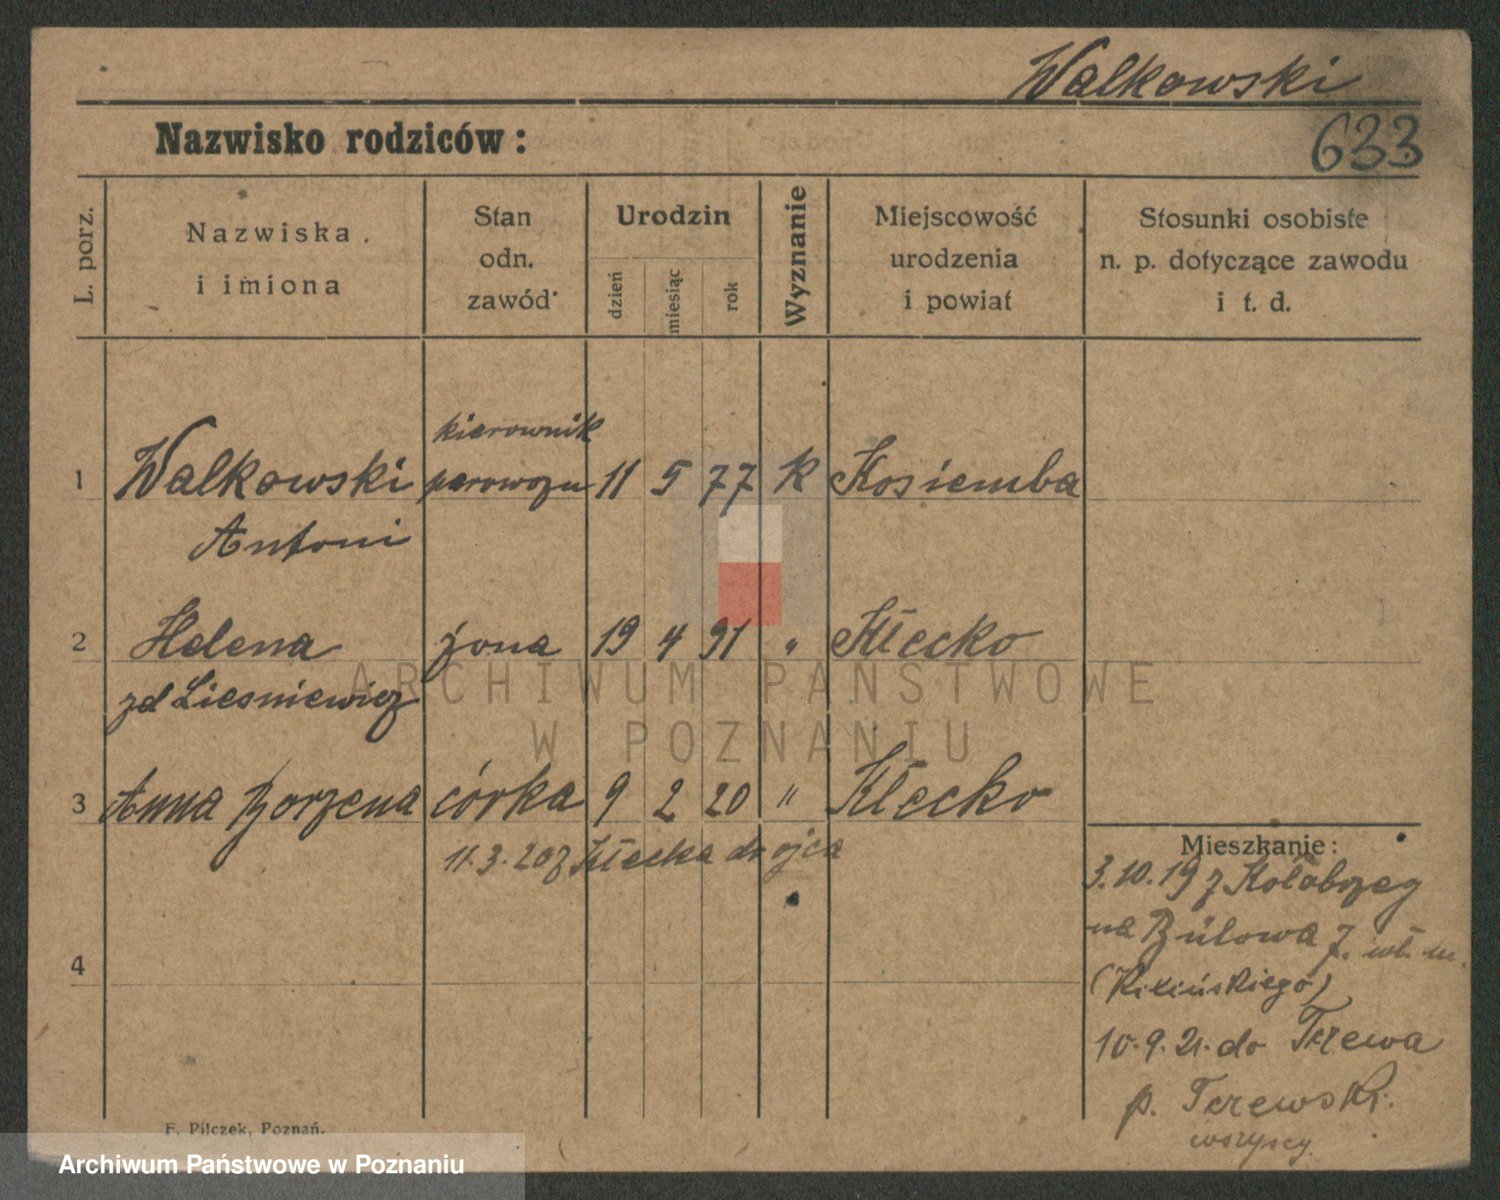 Walkowski
Nazwisko rodziców:
633
L. porz.
Nazwiska
i imiona
Stan
odn.
zawód
Urodzin
dzień
miesiąc
rok
Wyznanie
Miejscowość
urodzenia
i powiat
Stosunki osobiste
n. p. dotyczące zawodu
i t. d.
kierownik
1 Walkowski parowozu 11 5 77 k Kosiemba
Antoni
2 Helena żona 19 4 91 " Kłecko
zd Liesniewicz
3 Anna Borzena córka 9 2 20 " Kłecko
11.3.20 z Kłecka do ojca
Mieszkanie:
3.10.19 z Kołobrzeg
na Bülowa 7.
4
(Kilińskiego)
10.9.21. do
p.
wszyscy.
F. Pilczek, Poznań.
ARCHIWUM PAŃSTWOWE
W POZNANIU
Archiwum Państwowe w Poznaniu